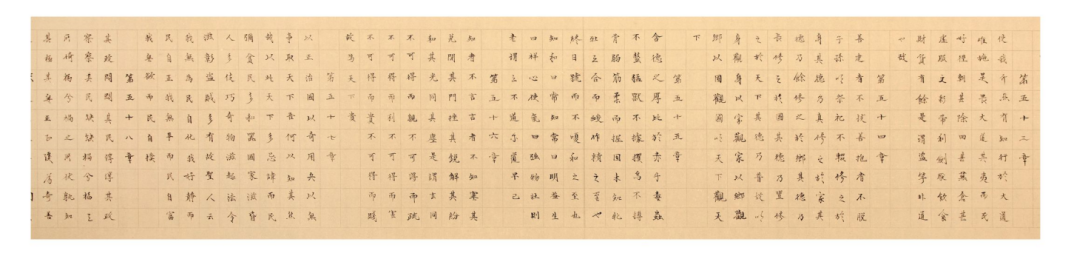 第五十三章
使我介然有知行於大道
唯施是畏大道甚夷而民
好徑朝甚除田甚蕪倉甚
虛服文綵帶利劍厭飲食
財貨有餘是謂盜夸非道
也哉
第五十四章
善建者不拔善抱者不脫
子孫以祭祀不輟修之於
身其德乃真修之於家其
德乃餘修之於鄉其德乃
長修之於國其德乃豐修
之於天下其德乃普故以
身觀身以家觀家以鄉觀
鄉以國觀國以天下觀天
下
第五十五章
含德之厚比於赤子毒蟲
不螫猛獸不據攫鳥不搏
骨弱筋柔而握固未知牝
牡之合而朘作精之至也
終日號而不嗄和之至也
知和曰常知常曰明益生
曰祥心使氣曰強物壯則
老謂之不道不道早已
第五十六章
知者不言言者不知塞其
兌閉其門挫其銳解其紛
和其光同其塵是謂玄同
不可得而親不可得而疏
不可得而利不可得而害
不可得而貴不可得而賤
故為天下貴
第五十七章
以正治國以奇用兵以無
事取天下吾何以知其然
哉以此天下多忌諱而民
彌貧民多利器國家滋昏
人多伎巧奇物滋起法令
滋彰盜賊多有故聖人云
我無為民自化我好靜而
民自正我無事而民自富
我無欲而民自樸
第五十八章
其政悶悶其民淳淳其政
察察其民缺缺禍兮福之
所倚福兮禍之所伏孰知
其極其無正正復為奇善